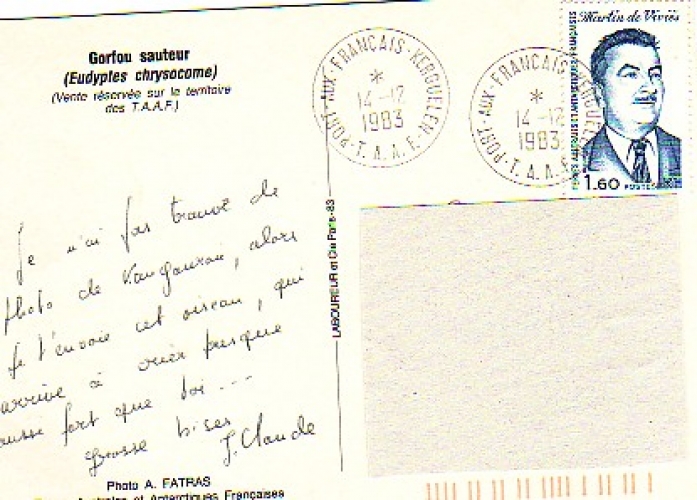 Gorfou sauteur
(Eudyptes chrysocome)
(Vente réservée sur le territoire
des T.A.A.F.)
Je n'ai pas trouvé de
photo de kangourou, alors
je t'envoie cet oiseau, qui
arrive à crier presque
aussi fort que toi...
Grosse bises
J. Claude
Photo A. FATRAS
Australes et Antarctiques Françaises
LABOUREUR et Cie Paris-83
PORT-AUX-FRANCAIS-KERGUELEN
*
14-12
1983
T.A.A.F.
PORT-AUX-FRANCAIS-KERGUELEN
*
14-12
1983
T.A.A.F.
Martin de Viviès
TERRES AUSTRALES ET ANTARCTIQUES FRANÇAISES
1.60 POSTES